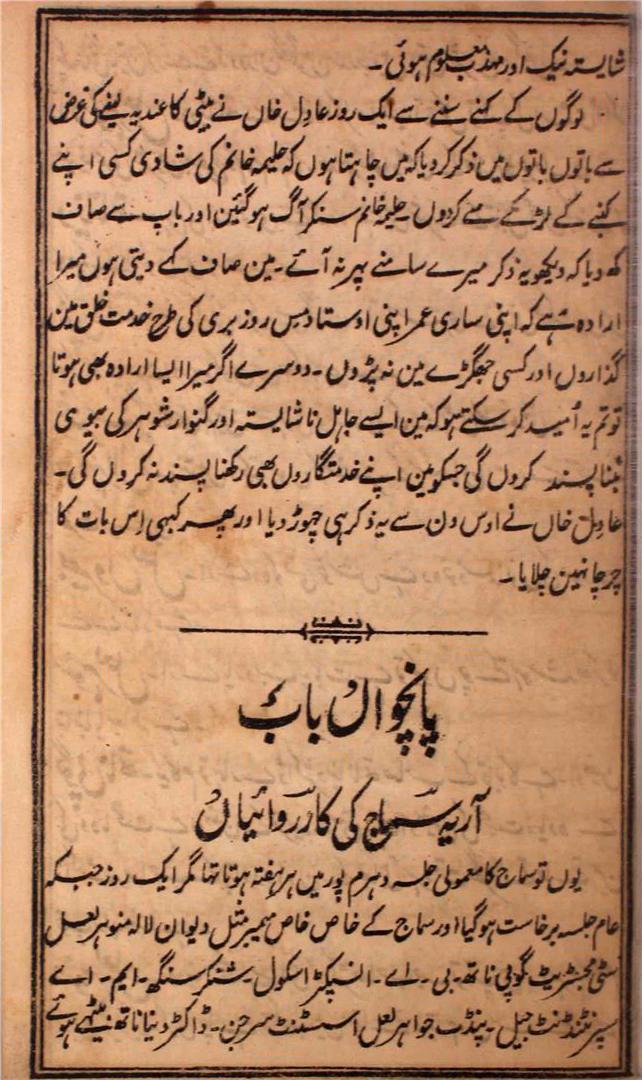 شایستہ نیک اور مہذب معلوم ہوئی۔
لوگوں کے کہنے سننے سے ایک روز عادل خاں نے بیٹی کا عندیہ لینے کی غرض
سے باتوں باتوں میں ذکر کر دیا کہ میں چاہتا ہوں کہ حلیمہ خانم کی شادی کسی اپنے
کنبے کے لڑکے سے کردوں۔ حلیمہ خانم سنکر آگ ہوگئین اور باپ سے صاف
کہہ دیا کہ دیکھو یہ ذکر میرے سامنے پہر نہ آئے۔ مین صاف کہے دیتی ہوں میرا
ارادہ ہے کہ اپنی ساری عمر اپنی اوستاد مس روز بری کی طرح خدمت خلق مین
گذاروں اور کسی جھگڑے مین نہ پڑوں۔ دوسرے اگر میرا ایسا ارادہ بھی ہوتا
تو تم یہ اُمید کر سکتے ہو کہ مین ایسے جاہل ناشایستہ اور گنوار شوہر کی بیوی
بننا پسند کروں گی جسکو مین اپنے خدمتگاروں بھی رکھنا پسند نہ کروں گی۔
عادل خاں نے اوس دن سے یہ ذکر ہی چہوڑ دیا اور پھر کبہی اِس بات کا
چرچا نہین چلایا۔
پانچواں باب
آریہ سماج کی کارروائیاں
یوں تو سماج کا معمولی جلسہ دہرم پور میں ہر ہفتہ ہوتا تھا مگر ایک روز جبکہ
عام جلسہ برخاست ہوگیا اور سماج کے خاص خاص ممبر مثل دیوان لالہ منوہر لعل
سٹی مجسٹریٹ گوپی ناتھ۔ بی۔ اے۔ انسپکٹر اسکول۔ شنکر سنگھ۔ ایم۔ اے
سپرنٹنڈنٹ جیل۔ پنڈت جواہر لعل اسسٹنٹ سرجن۔ ڈاکٹر دینا ناتھ بیٹھے ہوئے